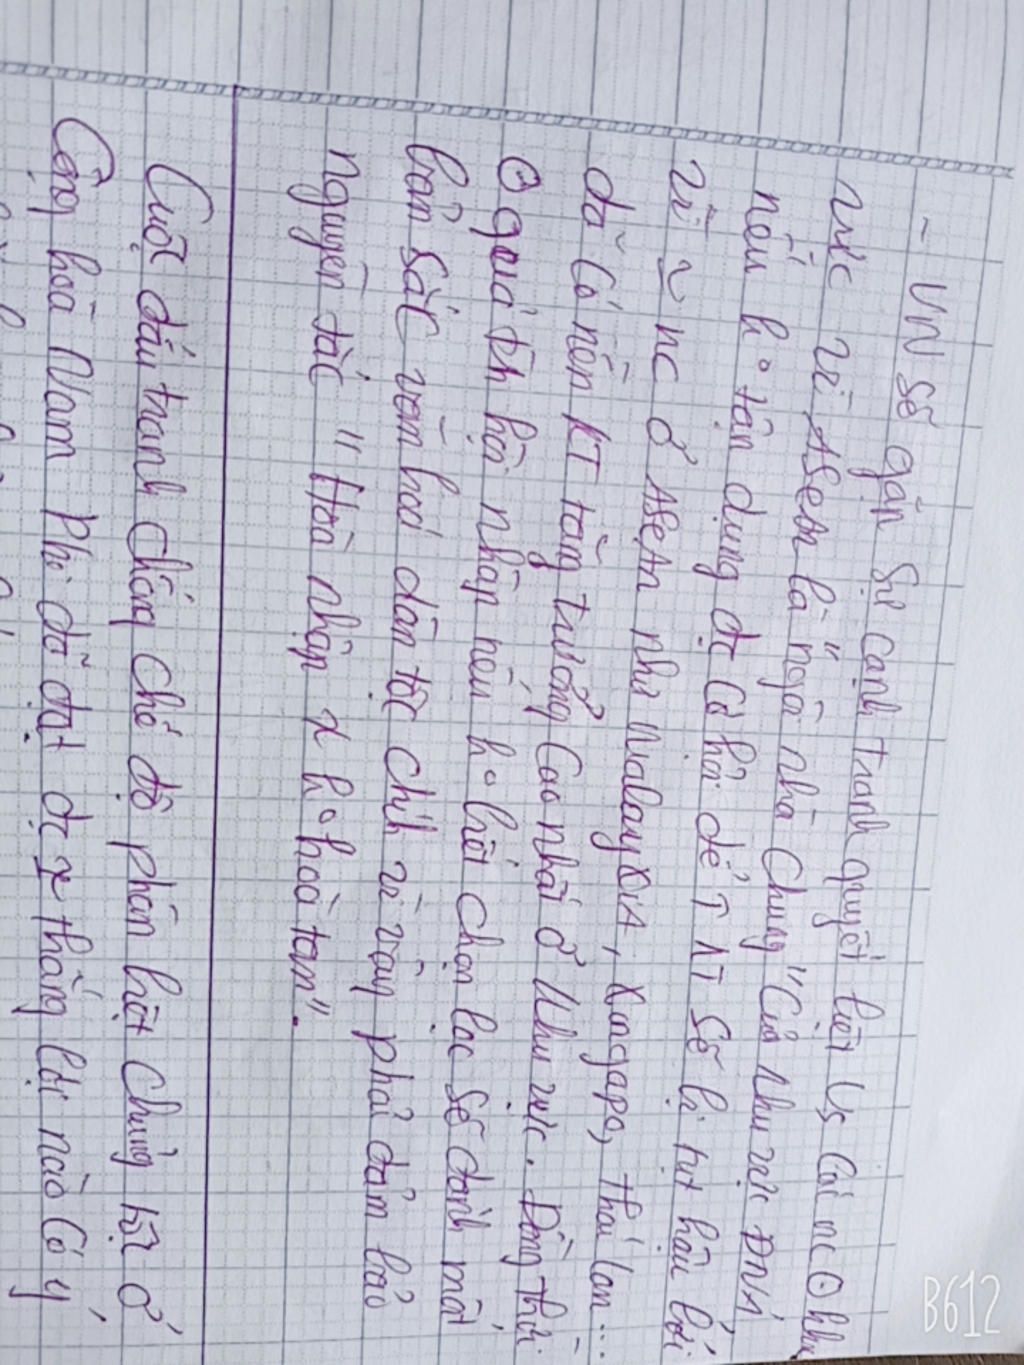 - VN sẽ gặp sự cạnh tranh quyết liệt vs các nc ⊙ khu
vực vì ASean là "ngôi nhà chung" của khu vực ĐNÁ,
nếu ko tận dụng đc cơ hội để ↑ KT sẽ bị tụt hậu bởi
vì ~ nc ở ASEAN như Malayxia, Xingapo, Thái Lan...
đã có nền KT tăng trưởng cao nhất ở khu vực. Đồng thời
⊙ quá trình hội nhập nếu ko biết chọn lọc sẽ đánh mất
bản sắc văn hoá dân tộc chính vì vậy phải đảm bảo
nguyên tắc "Hoà nhập x ko hoà tan".
Cuộc đấu tranh chống chế độ phân biệt chủng tộc ở
Cộng hoà Nam Phi đã đạt đc x thắng lợi nào có ý
B612